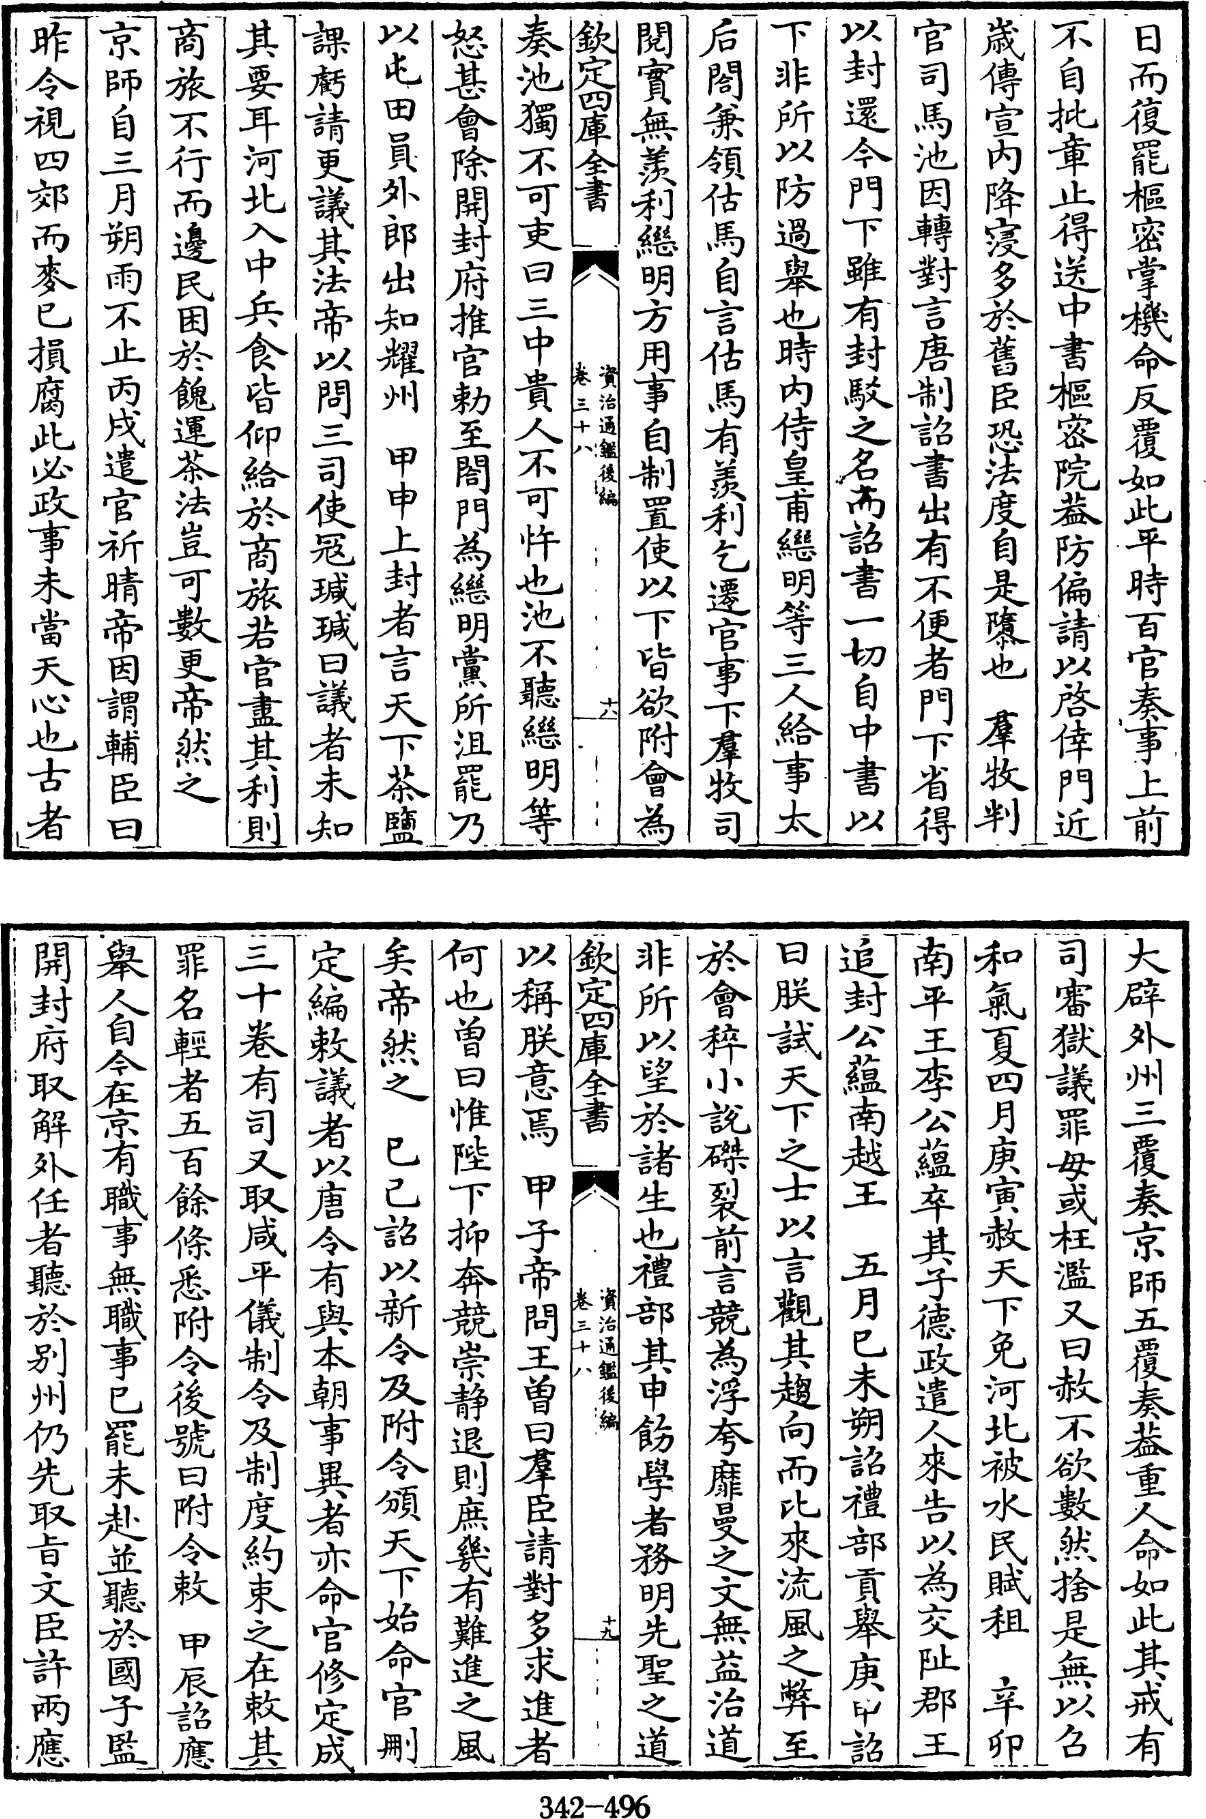 日而復罷樞密掌機命反覆如此平時百官奏事上前
不自批章止得送中書樞密院葢防偏請以啓倖門近
嵗傳宣内降寖多於舊臣恐法度自是隳也　羣牧判
官司馬池因轉對言唐制詔書出有不便者門下省得
以封還今門下雖有封駁之名而詔書一切自中書以
下非所以防過舉也時内侍皇甫繼明等三人給事太
后閤兼領估馬自言估馬有羨利乞遷官事下羣牧司
閱實無羨利繼明方用事自制置使以下皆欲附會為
欽定四庫全書
資治通鑑後編
卷三十八
十八
奏池獨不可吏曰三中貴人不可忤也池不聽繼明等
怒甚會除開封府推官勅至閤門為繼明黨所沮罷乃
以屯田員外郎出知耀州　甲申上封者言天下茶鹽
課虧請更議其法帝以問三司使寇瑊瑊曰議者未知
其要耳河北入中兵食皆仰給於商旅若官盡其利則
商旅不行而邊民困於餽運茶法豈可數更帝然之
京師自三月朔雨不止丙戌遣官祈晴帝因謂輔臣曰
昨令視四郊而麥已損腐此必政事未當天心也古者
大辟外州三覆奏京師五覆奏葢重人命如此其戒有
司審獄議罪毋或枉濫又曰赦不欲數然捨是無以召
和氣夏四月庚寅赦天下免河北被水民賦租　辛卯
南平王李公蘊卒其子德政遣人來告以為交阯郡王
追封公蘊南越王　五月己未朔詔禮部貢舉庚申詔
曰朕試天下之士以言觀其趨向而比來流風之弊至
於會稡小說磔裂前言競為浮夸靡曼之文無益治道
非所以望於諸生也禮部其申飭學者務明先聖之道
欽定四庫全書
資治通鑑後編
卷三十八
十九
以稱朕意焉　甲子帝問王曾曰羣臣請對多求進者
何也曾曰惟陛下抑奔競崇静退則庶幾有難進之風
矣帝然之　己巳詔以新令及附令頒天下始命官刪
定編敕議者以唐令有與本朝事異者亦命官修定成
三十卷有司又取咸平儀制令及制度約束之在敕其
罪名輕者五百餘條悉附令後號曰附令敕　甲辰詔應
舉人自今在京有職事無職事已罷未赴並聽於國子監
開封府取解外任者聽於别州仍先取旨文臣許兩應
342-496